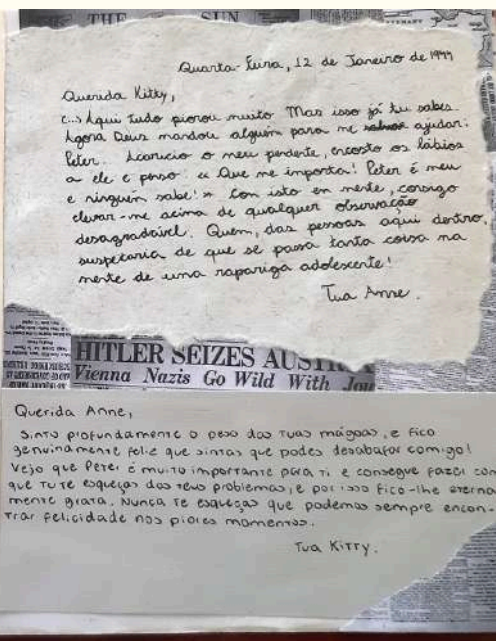 THE SUN
Quarta-feira, 12 de Janeiro de 1944
Querida Kitty,
(...) Aqui tudo piorou muito. Mas isso já tu sabes.
Agora Deus mandou alguém para me ajudar:
Peter. Acaricio o meu pendente, encosto os lábios
a ele e penso: « Que me importa! Peter é meu
e ninguém sabe! » Con isto en mente, consigo
elevar-me acima de qualquer observação
desagradável. Quem, das pessoas aqui dentro,
suspeitaria de que se passa tanta coisa na
mente de uma rapariga adolescente!
Tua Anne.
HITLER SEIZES AUSTRIA
Vienna Nazis Go Wild With Joy
Querida Anne,
Sinto profundamente o peso das tuas mágoas, e fico
genuinamente feliz que sintas que podes desabafar comigo!
Vejo que Peter é muito importante para ti e consegue fazer com
que tu te esqueças dos teus problemas, e por isso fico-lhe eterna-
mente grata. Nunca te esqueças que podemos sempre encon-
trar felicidade nos piores momentos.
Tua Kitty.